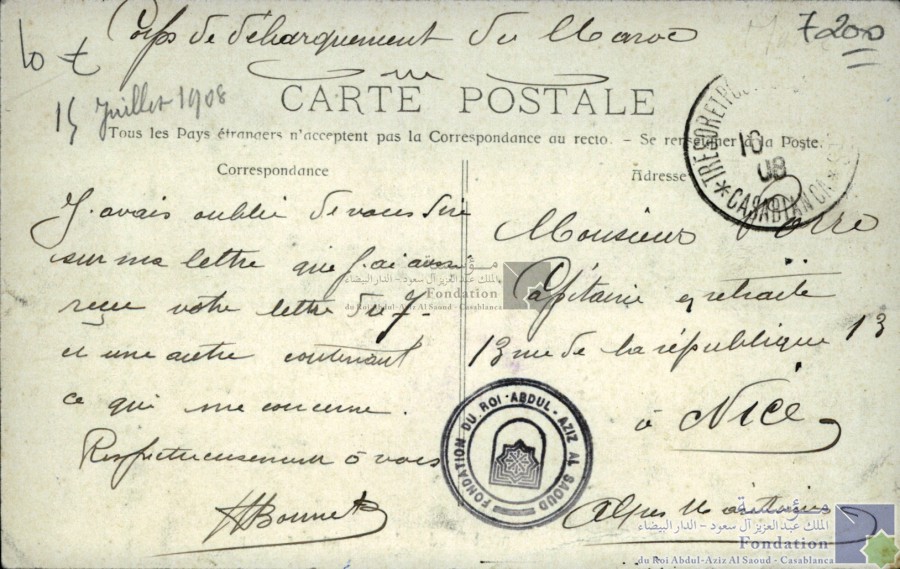 Corps de débarquement du Maroc
7200
15 Juillet 1908
CARTE POSTALE
Tous les Pays étrangers n'acceptent pas la Correspondance au recto. – Se renseigner à la Poste.
Correspondance
J'avais oublié de vous dire
sur ma lettre que j'ai aussi
reçu votre lettre du 7
et une autre contenant
ce qui me concerne.
Respectueusement à vous
HBonnet
Adresse
TRESOR ET PO
10
08
CASABLANCA
Monsieur
Capitaine en retraite
13 rue de la république 13
à Nice
Alpes Maritimes
FONDATION DU ROI - ABDUL - AZIZ AL SAOUD
مؤسسة
الملك عبد العزيز آل سعود - الدار البيضاء
Fondation
du Roi Abdul-Aziz Al Saoud - Casablanca
مؤسسة
الملك عبد العزيز آل سعود - الدار البيضاء
Fondation
du Roi Abdul-Aziz Al Saoud - Casablanca